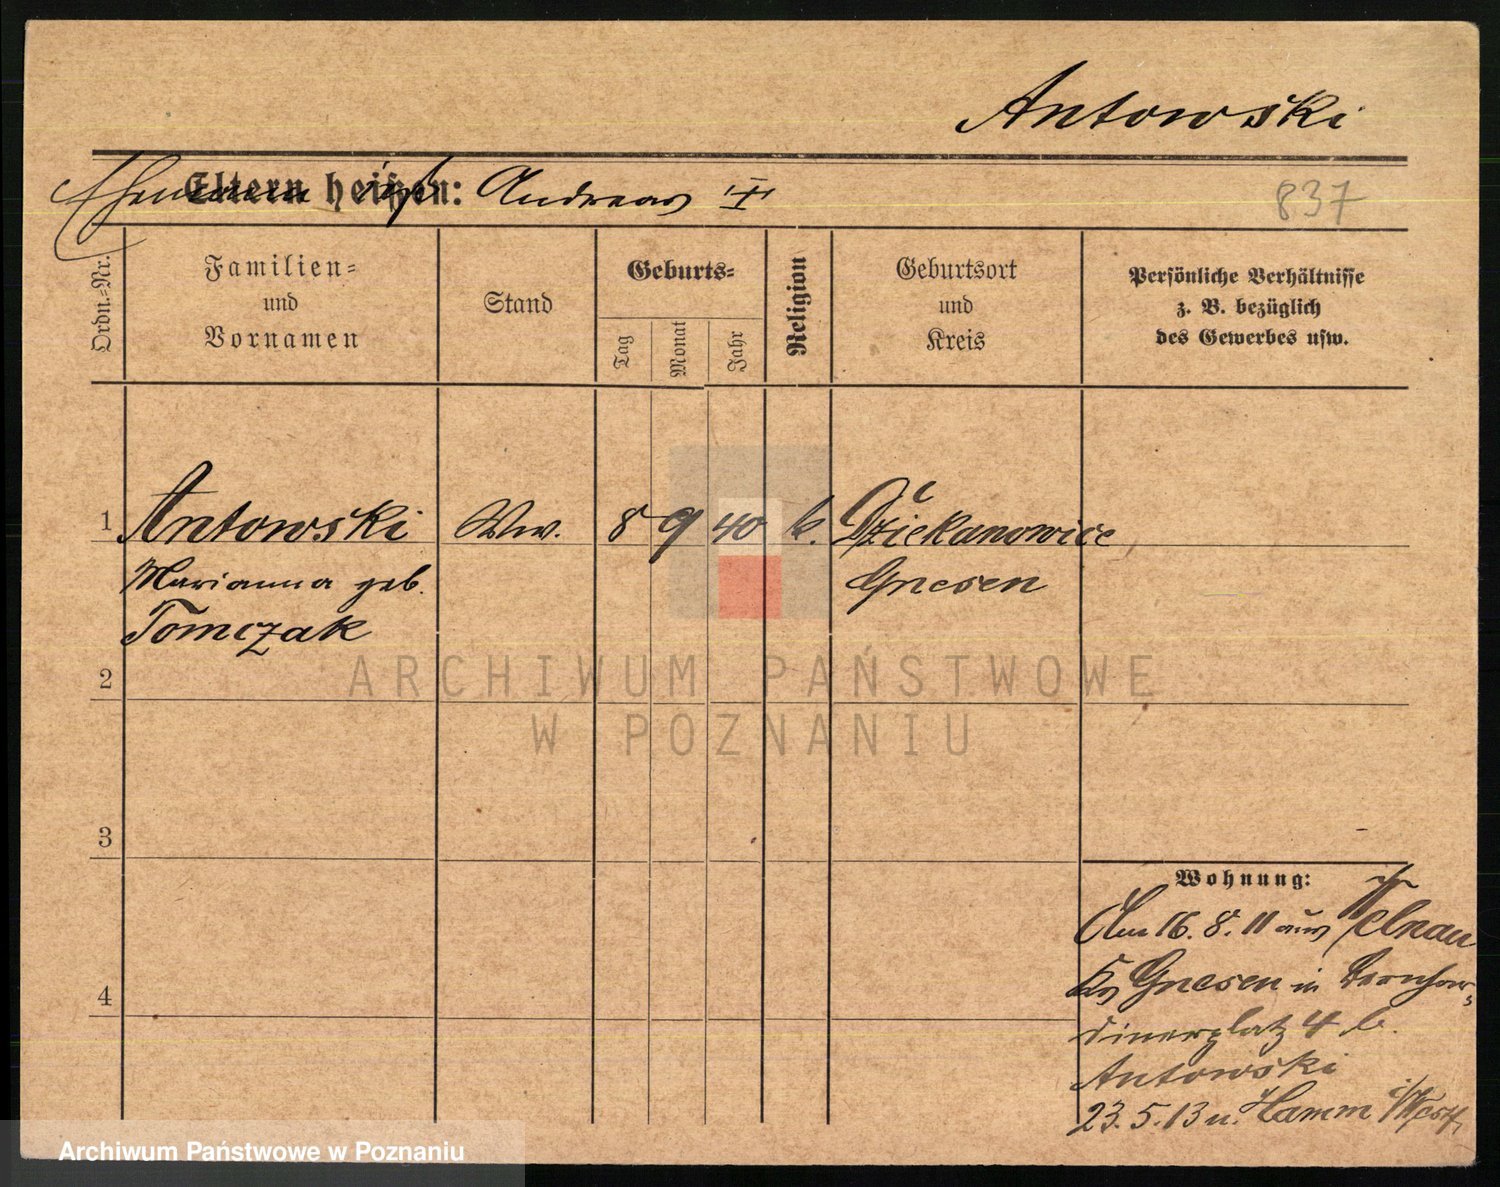 Antowski
Ehemann Eltern heißen: Andreas
837
Ordn.-Nr.
Familien-
und
Vornamen
Stand
Geburts-
Tag
Monat
Jahr
Religion
Geburtsort
und
Kreis
Persönliche Verhältnisse
z. B. bezüglich
des Gewerbes usw.
1
Antowski
Ww.
8
9
40
k.
Dziekanowice
Marianna geb.
Gnesen
Tomczak
2
3
4
Wohnung:
Am 16.8.11 aus Welnau
Krs Gnesen in Bernhar-
dinerplatz 4 b.
Antowski
23.5.13 n. Hamm i/Westf.
ARCHIWUM PAŃSTWOWE
W POZNANIU
Archiwum Państwowe w Poznaniu